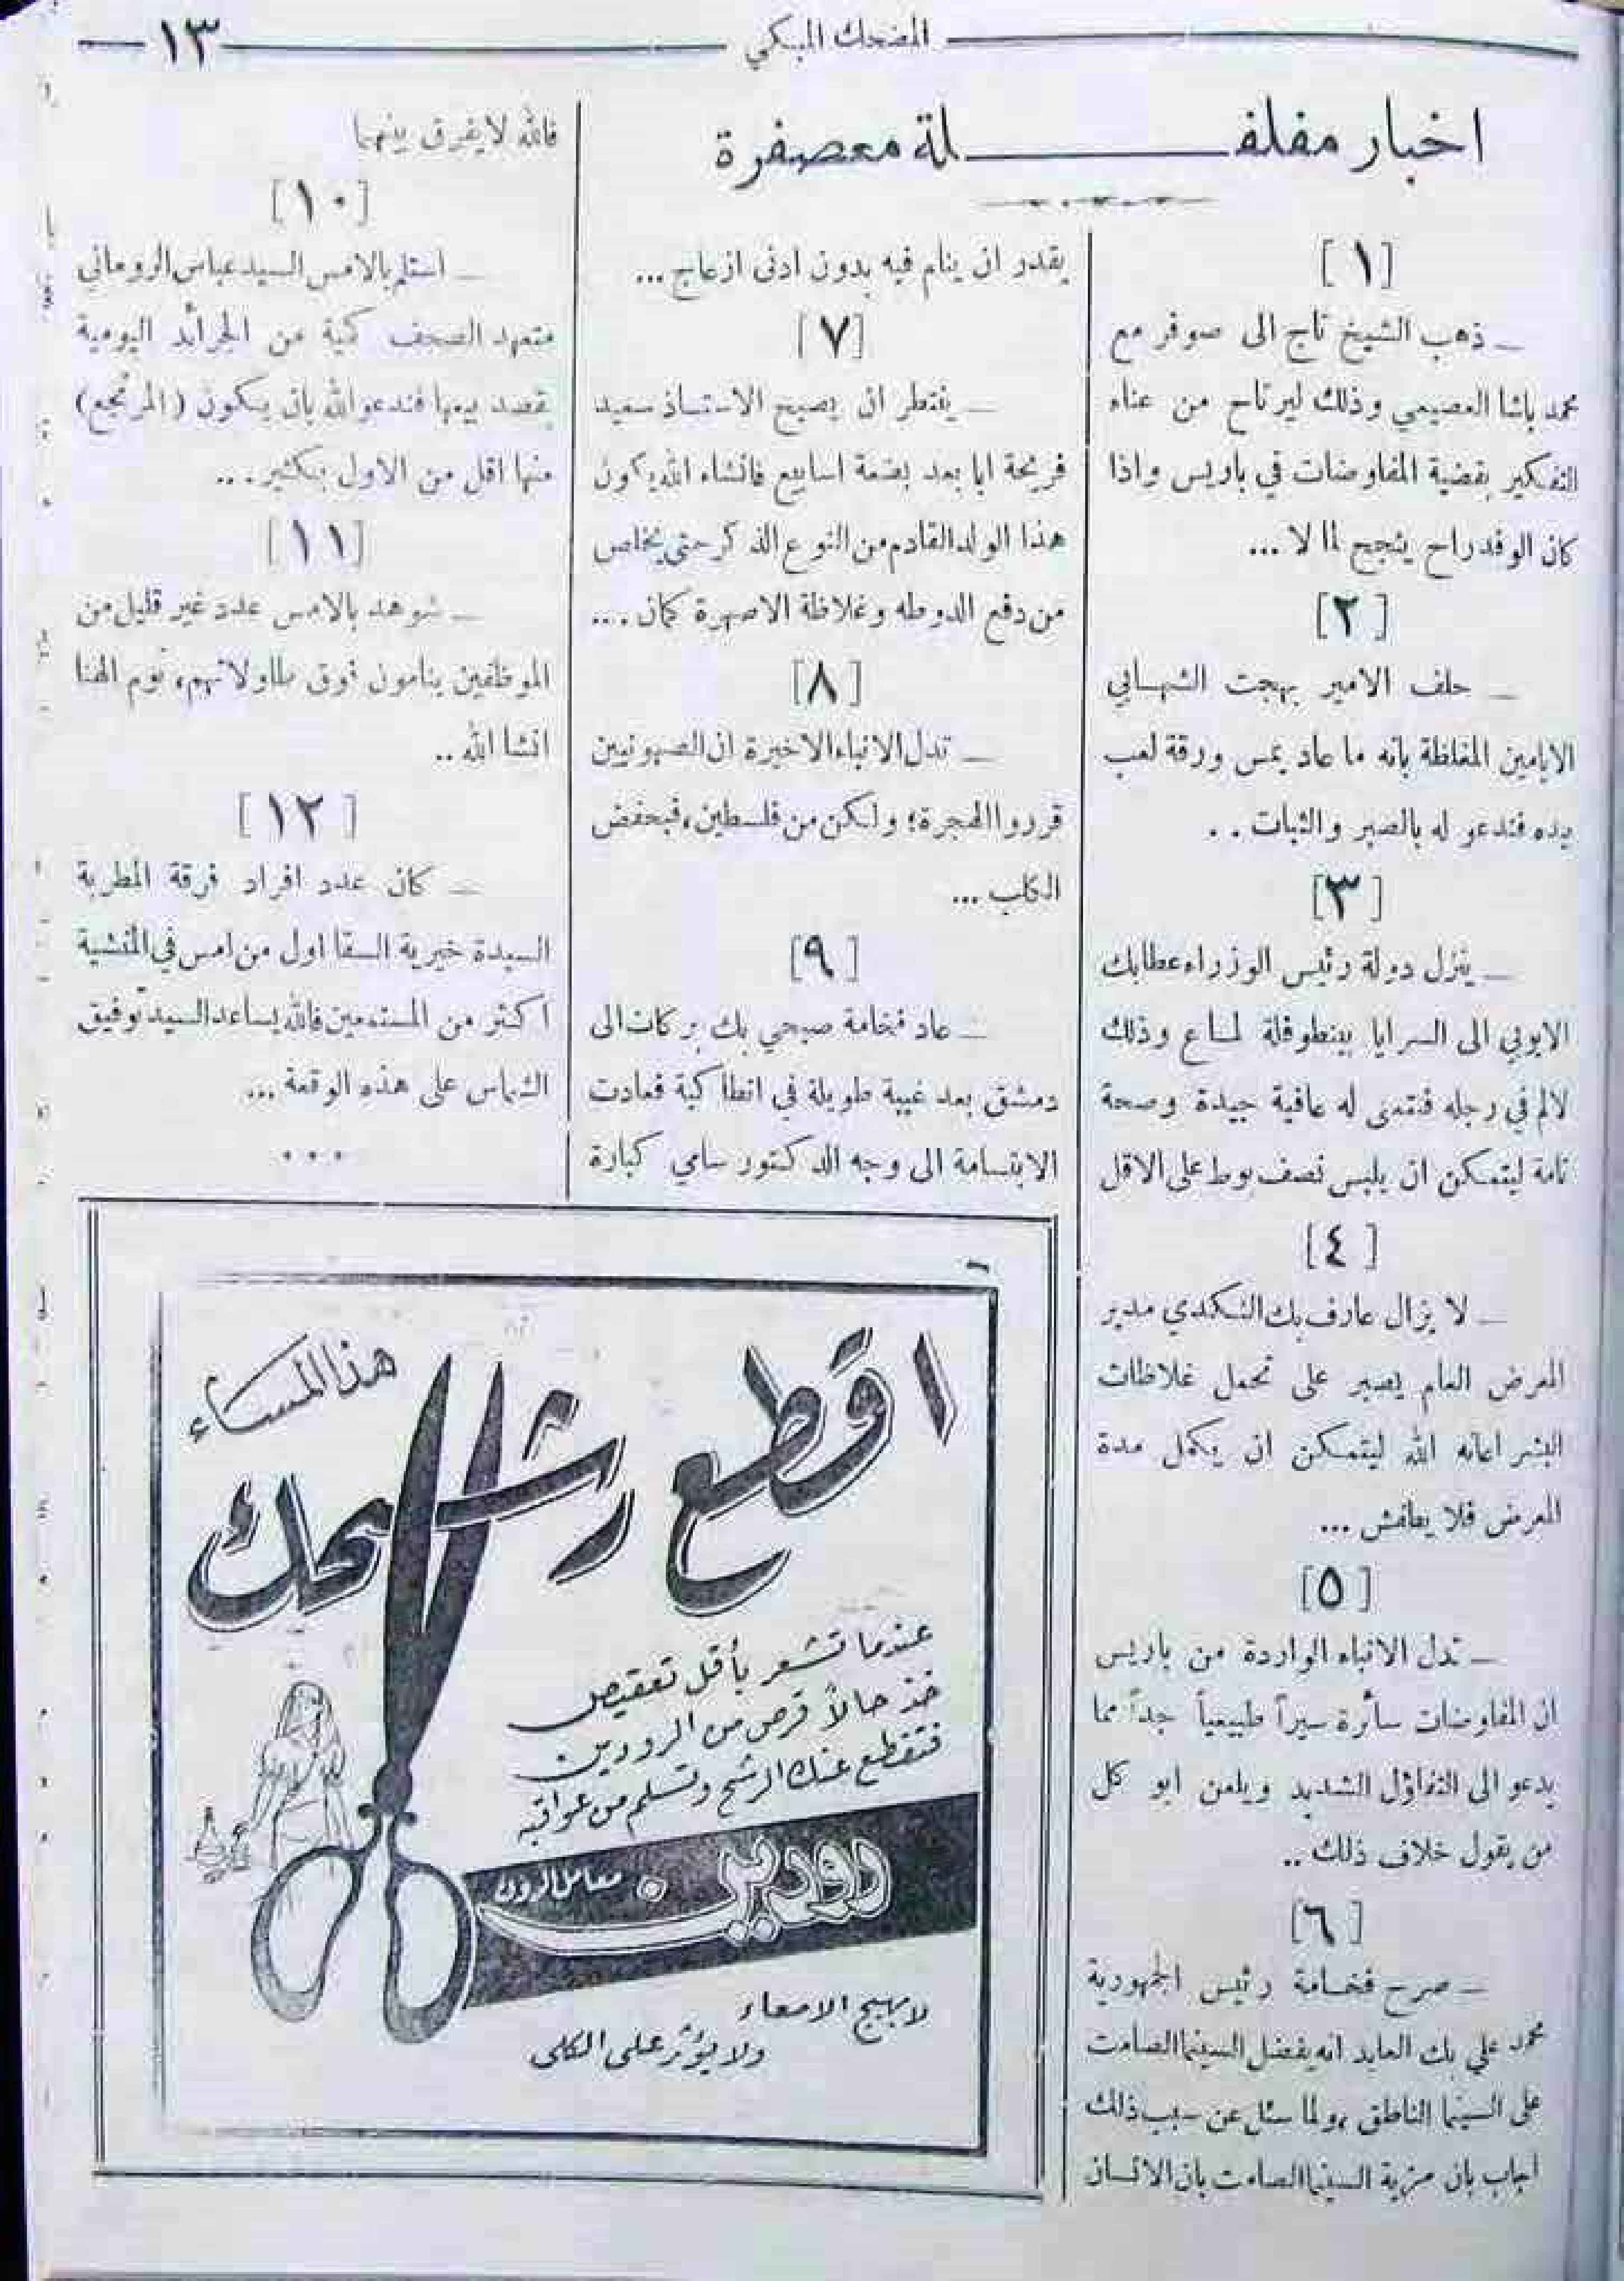 المضحك المبكي
١٣
اخبار مفلفلة معصفرة
[١]
— ذهب الشيخ تاج الى صوفر مع
محمد باشا العصيمي وذلك ليرتاح من عناء
التفكير بقضية المفاوضات في باريس واذا
كان الوفد راح ينجح لما لا ...
[٢]
— حلف الامير بهجت الشهابي
الايامين المغلظة بانه ما عاد يمس ورقة لعب
بيده فندعو له بالصبر والثبات . .
[٣]
— ينزل دولة رئيس الوزراء عطا بك
الايوبي الى السرايا ببنطوفلة لماع وذلك
لالم في رجله فنتمنى له عافية جيدة وصحة
تامة ليتمكن ان يلبس نصف بوط على الاقل
[٤]
— لا يزال عارف بك النكدي مدير
المعرض العام يصبر على تحمل غلاظات
البشر اعانه الله ليتمكن ان يكمل مدة
المعرض فلا يطفش ...
[٥]
— تدل الانباء الواردة من باريس
ان المفاوضات سائرة سيراً طبيعياً جداً مما
يدعو الى التفاؤل الشديد ويلعن ابو كل
من يقول خلاف ذلك ..
[٦]
— صرح فخامة رئيس الجمهورية
محمد علي بك العابد انه يفضل السينما الصامت
على السينما الناطق ، ولما سئل عن سبب ذلك
اجاب بان مزية السينما الصامت بان الانسان
يقدر ان ينام فيه بدون ادنى ازعاج ...
[٧]
— ينتظر ان يصبح الاستاذ سعيد
فريحة ابا بعد بضعة اسابيع فانشاء الله يكون
هذا الولد القادم من النوع الذكر حتى يخلص
من دفع الدوطه وغلاظة الاصهرة كمان ...
[٨]
— تدل الانباء الاخيرة ان الصهيونيين
قرروا الهجرة ؛ ولكن من فلسطين ، فبحفض
الكلب ...
[٩]
— عاد فخامة صبحي بك بركات الى
دمشق بعد غيبة طويلة في انطاكية فعادت
الابتسامة الى وجه الدكتور سامي كبارة
فالله لا يفرق بينهما
[١٠]
— استلم بالامس السيد عباس الروماني
متعهد الصحف كمية من الجرائد اليومية
بقصد بيعها فندعو الله بان يكون (المرتجع)
منها اقل من الاول بكثير ...
[١١]
— شوهد بالامس عدد غير قليل من
الموظفين ينامون فوق طاولاتهم ، نوم الهنا
انشا الله ..
[١٢]
— كان عدد افراد فرقة المطربة
السيدة خيرية السقا اول من امس في المنشية
اكثر من المستمعين فالله يساعد السيد توفيق
الشماس على هذه الوقعة ...
• • •
اقطع
رشحك
هذا المساء
عندما تشعر بأقل تعقيص
خذ حالاً قرص من الرودين
فتقطع عنك الرشح وتسلم من عواقبه
رودين
معامل الرون
لا يهيج الامعاء
ولا يؤثر على الكلى